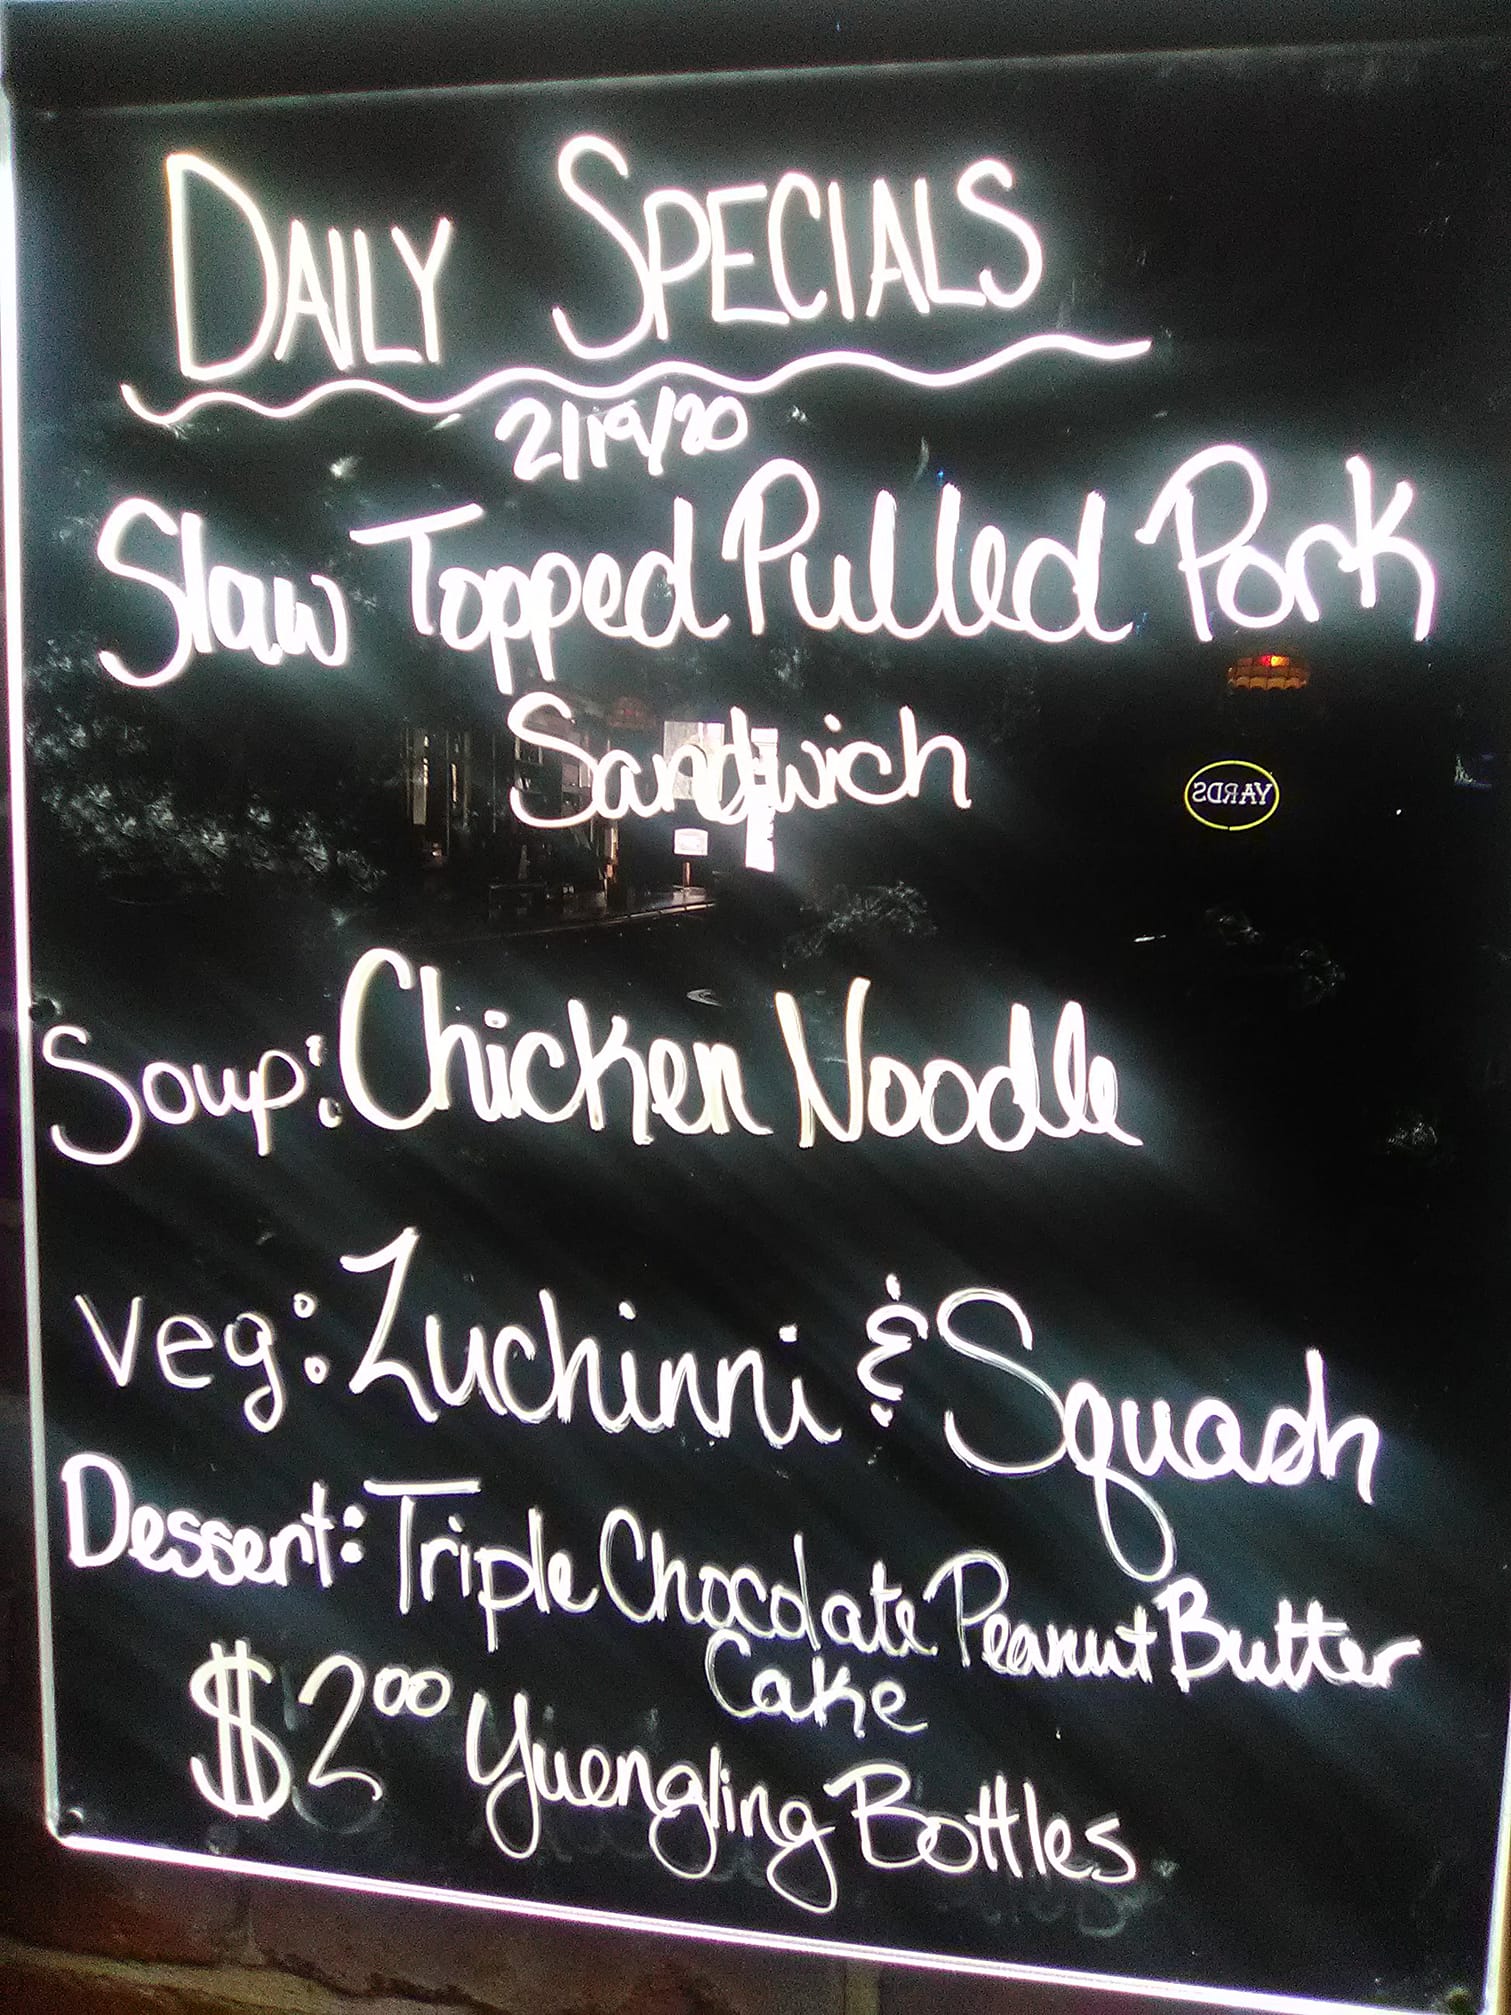 DAILY SPECIALS
2/19/20
Slaw Topped Pulled Pork
Sandwich
YARDS
Soup: Chicken Noodle
Veg: Zuchinni & Squash
Dessert: Triple Chocolate Peanut Butter
Cake
$2.00 Yuengling Bottles